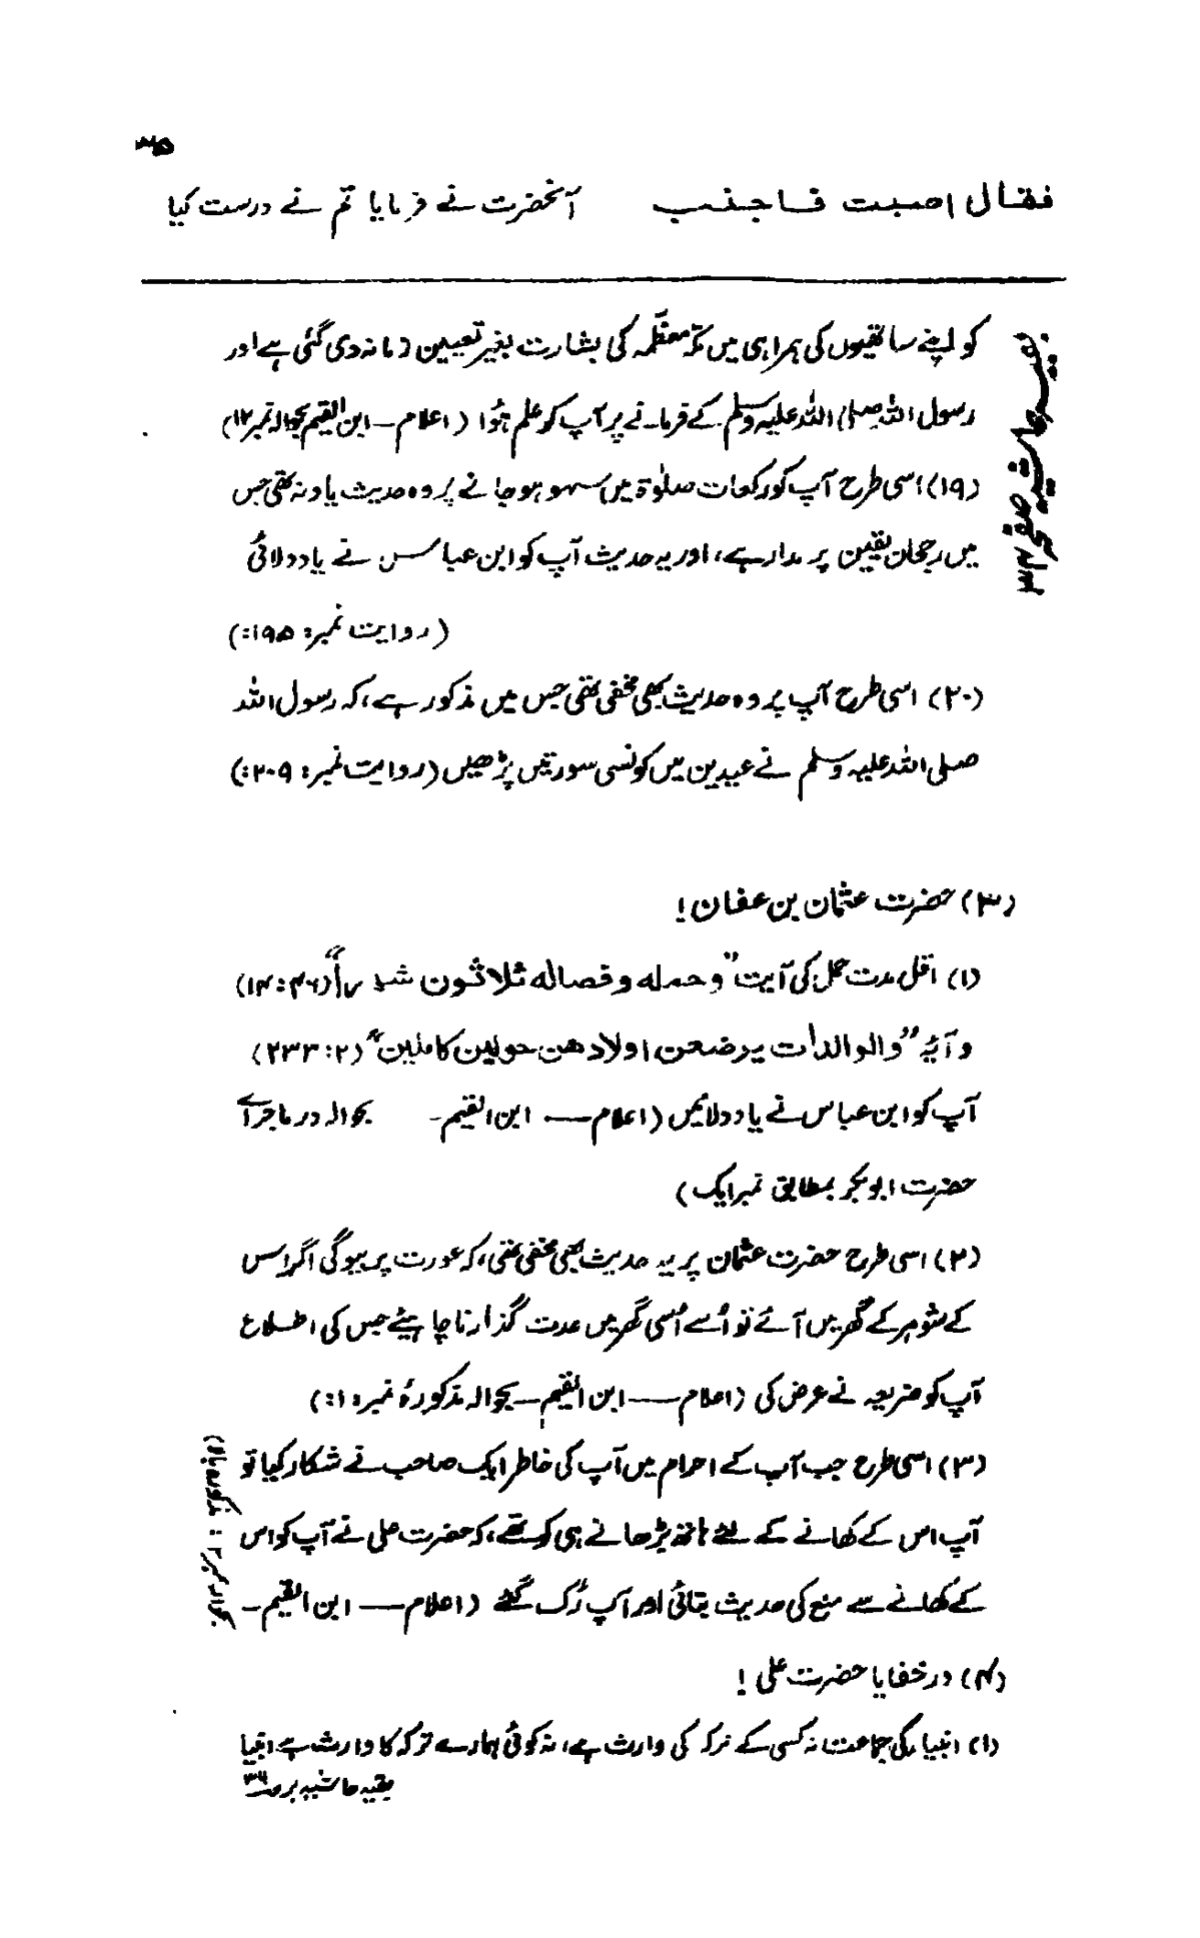 ۳۵
فقال اصبت فاجنب آنحضرت نے فرمایا تم نے درست کیا
بقیہ حاشیہ صفحہ ۳۴
کو اپنے ساتھیوں کی ہمراہی میں مکہ معظّمہ کی بشارت بغیر تعیین زمانہ دی گئی ہے اور
رسول اللہ صلی اللہ علیہ وسلم کے فرمانے پر آپ کو علم ہؤا (اعلام — ابن القیم بحوالہ نمبر ۱۲)
(۱۹) اسی طرح آپ کو رکعات صلوٰۃ میں سہو ہو جانے پر وہ حدیث یاد نہ تھی جس
میں رجحان یقین پر مدار ہے، اور یہ حدیث آپ کو ابن عباس نے یاد دلائی
(روایت نمبر: ۱۹۵:)
(۲۰) اسی طرح آپ پر وہ حدیث بھی مخفی تھی جس میں مذکور ہے، کہ رسول اللہ
صلی اللہ علیہ وسلم نے عیدین میں کونسی سورتیں پڑھیں (روایت نمبر: ۲۰۹:)
(۳) حضرت عثمان بن عفان!
(۱) اقل مدت حمل کی آیت ”وحملہ وفصالہ ثلاثون شہراً“ (۱۴:۴۶)
و آیۂ ”والوالدات یرضعن اولادھن حولین کاملین“ (۲۳۳:۲)
آپ کو ابن عباس نے یاد دلائیں (اعلام — ابن القیم - بحوالہ در ماجرائے
حضرت ابو بکر بمطابق نمبر ایک)
(۲) اسی طرح حضرت عثمان پر یہ حدیث بھی مخفی تھی، کہ عورت پر بیوگی اگر اس
کے شوہر کے گھر میں آئے تو اُسے اُسی گھر میں عدت گذارنا چاہیئے جس کی اطلاع
آپ کو فریعہ نے عرض کی (اعلام — ابن القیم — بحوالہ مذکورۂ نمبر: ۱:)
(۳) اسی طرح جب آپ کے احرام میں آپ کی خاطر ایک صاحب نے شکار کیا تو
آپ اس کے کھانے کے لئے ہاتھ بڑھانے ہی کو تھے، کہ حضرت علی نے آپ کو اس
کے کھانے سے منع کی حدیث بتائی اور آپ رُک گئے (اعلام — ابن القیم -
بحوالہ نمبر ۲: مذکورہ بالا)
(۴) در خفایا حضرت علی!
(۱) انبیاء کی جماعت نہ کسی کے ترکہ کی وارث ہے، نہ کوئی ہمارے ترکہ کا وارث ہے انبیا
بقیہ حاشیہ بر صہ ۳۶